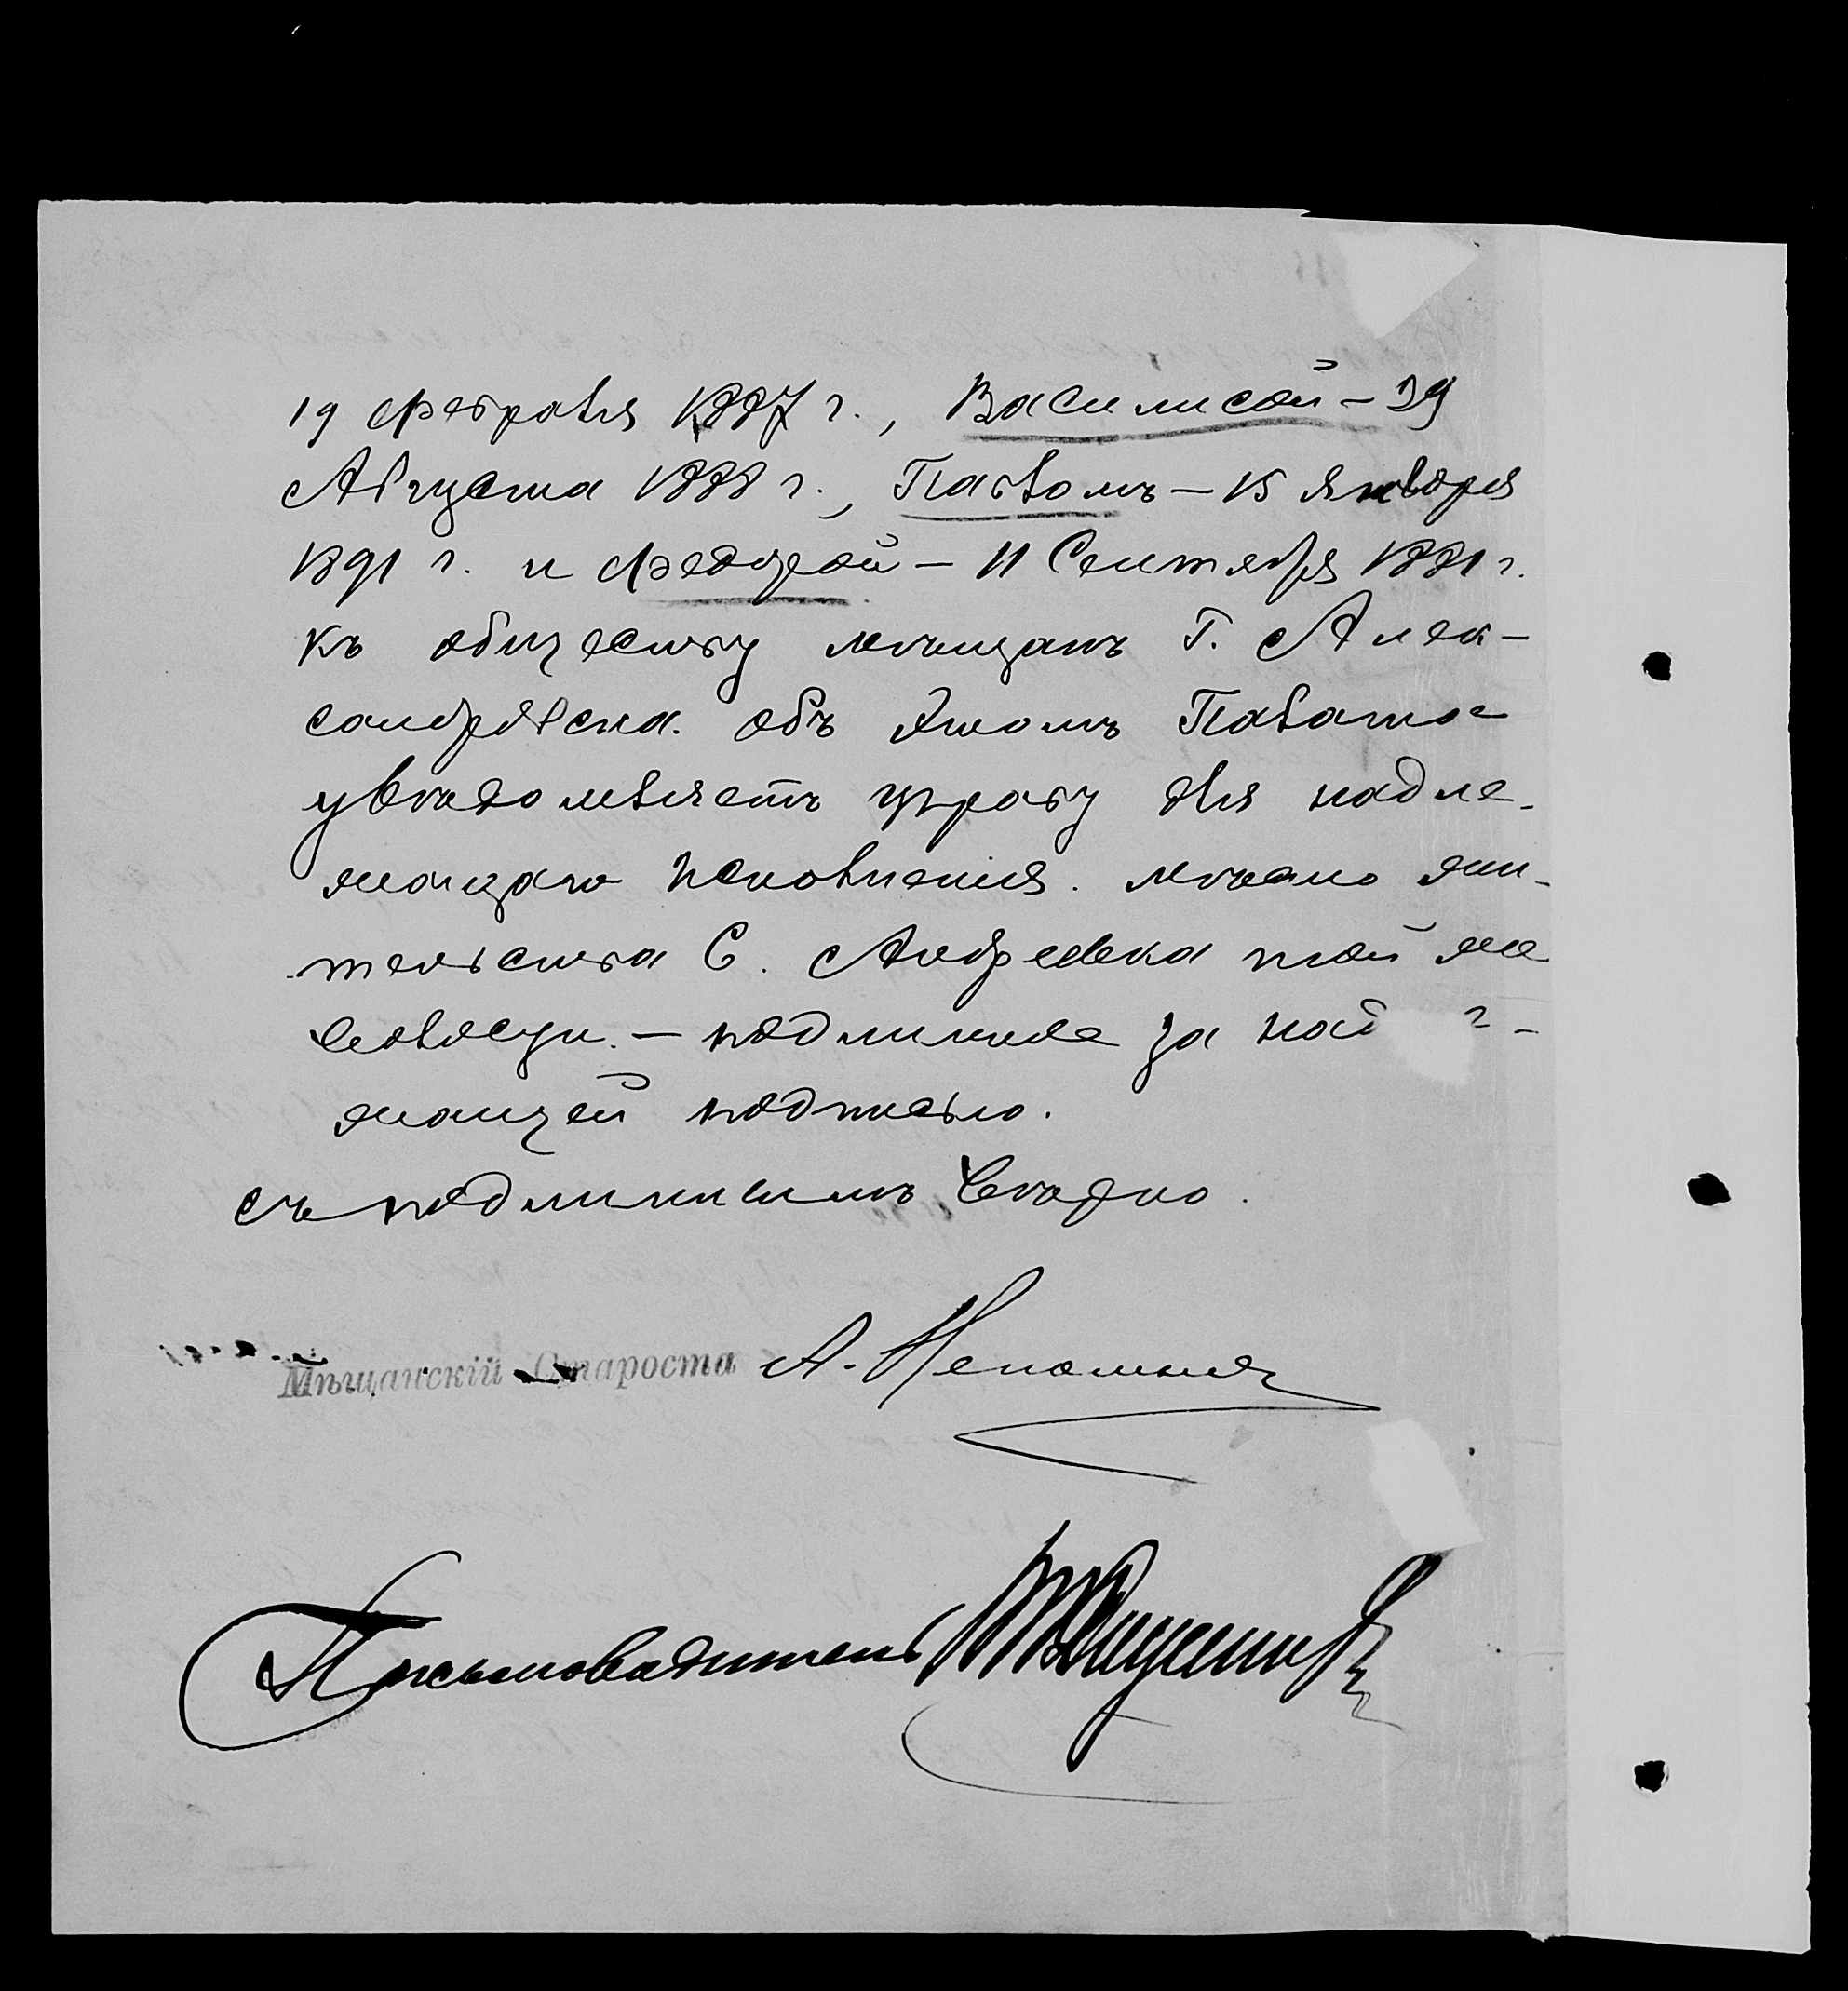 19 февраля 1887 г., Василисой – 29
Августа 1888 г., Павломъ – 15 января
1891 г. и Федорой – 11 Сентября 1881 г.
къ обществу мѣщанъ Г. Алек-
сандровска. Объ этомъ Палата
увѣдомляетъ управу для надле-
жащаго исполненія. Мѣсто жи-
тельства С. Андреевка той же
волости. – Подлинное за над
жащей подписью.
Съ подлиннымъ вѣрно.
Мѣщанскій Староста А.
Письмоводитель